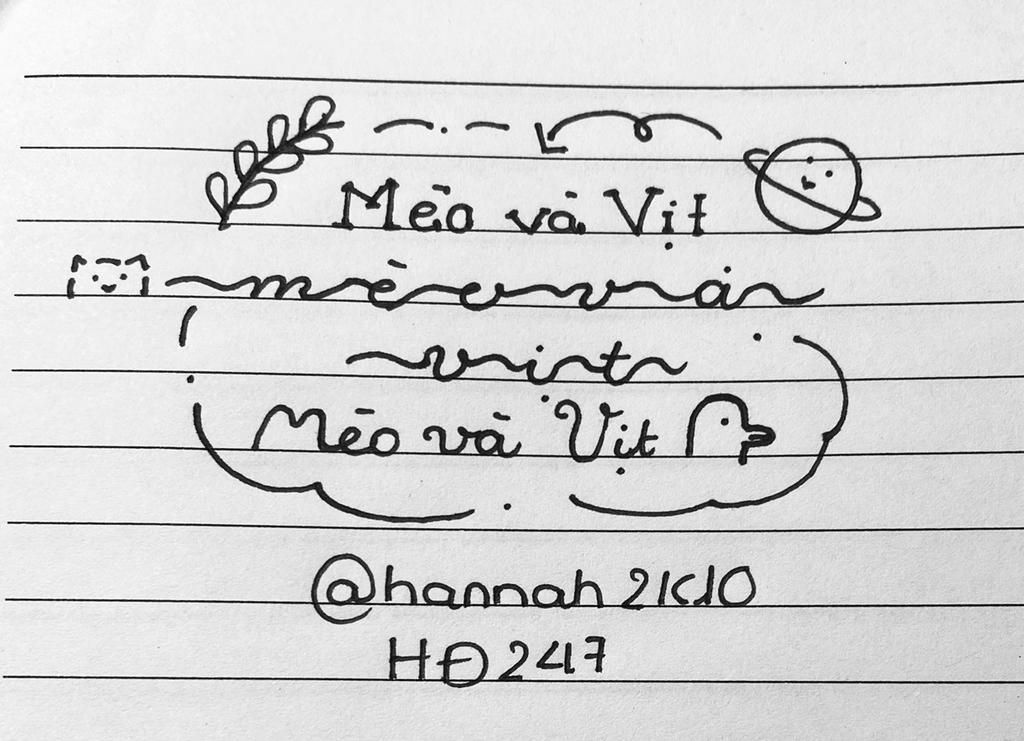 Mèo và Vịt
mèo và
vịt
Mèo và Vịt
@hannah2k10
HĐ247